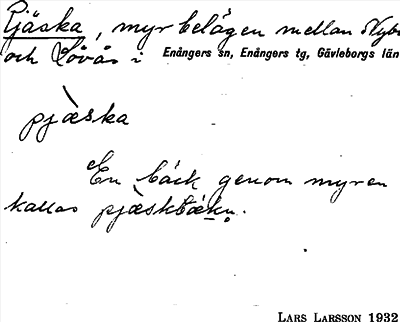 Pjäska, myr belägen mellan Nybo
och Lövås i Enångers sn, Enångers tg, Gävleborgs län
pjæska
En bäck genom myren
kallas pjæskbækn.
LARS LARSSON 1932